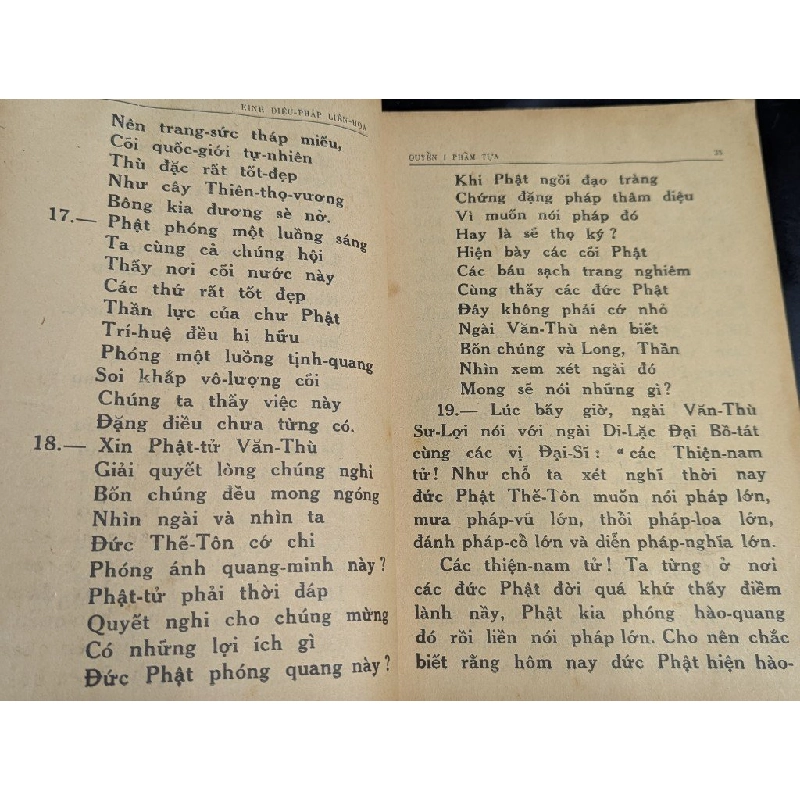 KINH DIỆU-PHÁP LIÊN-HOA
Nên trang-sức tháp miếu,
Cõi quốc-giới tự-nhiên
Thù đặc rất tốt-đẹp
Như cây Thiên-thọ-vương
Bông kia đương sè nở.
17.— Phật phóng một luồng sáng
Ta cùng cả chúng hội
Thấy nơi cõi nước này
Các thứ rất tốt đẹp
Thần lực của chư Phật
Trí-huệ đều hi hữu
Phóng một luồng tịnh-quang
Soi khắp vô-lượng cõi
Chúng ta thấy việc này
Đặng điều chưa từng có.
18.— Xin Phật-tử Văn-Thù
Giải quyết lòng chúng nghi
Bốn chúng đều mong ngóng
Nhìn ngài và nhìn ta
Đức Thế-Tôn cớ chi
Phóng ánh quang-minh này?
Phật-tử phải thời đáp
Quyết nghi cho chúng mừng
Có những lợi ích gì
Đức Phật phóng quang này?
QUYỂN I PHẨM TỰA
Khi Phật ngồi đạo tràng
Chứng đặng pháp thâm diệu
Vì muốn nói pháp đó
Hay là sẽ thọ ký?
Hiện bày các cõi Phật
Các báu sạch trang nghiêm
Cùng thấy các đức Phật
Đây không phải cớ nhỏ
Ngài Văn-Thù nên biết
Bốn chúng và Long, Thần
Nhìn xem xét ngài đó
Mong sẽ nói những gì?
19.— Lúc bấy giờ, ngài Văn-Thù
Sư-Lợi nói với ngài Di-Lặc Đại Bồ-tát
cùng các vị Đại-Sĩ: “ các Thiện-nam
tử! Như chỗ ta xét nghĩ thời nay
đức Phật Thế-Tôn muốn nói pháp lớn,
mưa pháp-vũ lớn, thổi pháp-loa lớn,
đánh pháp-cổ lớn và diễn pháp-nghĩa lớn.
Các thiện-nam tử! Ta từng ở nơi
các đức Phật đời quá khứ thấy điềm
lành nầy, Phật kia phóng hào-quang
đó rồi liền nói pháp lớn. Cho nên chắc
biết rằng hôm nay đức Phật hiện hào-